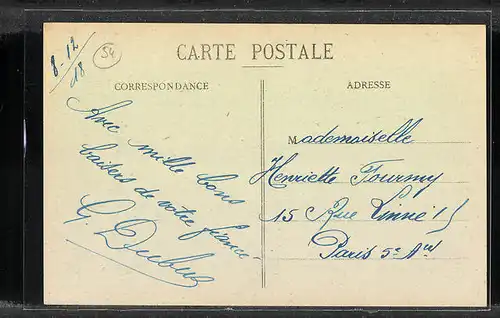 8-12
18
54
CARTE POSTALE
CORRESPONDANCE
ADRESSE
Avec mille bons
baisers de votre fiancé
G. Dubuc
Mademoiselle
Henriette Fourmy
15 Rue Linné 15
Paris 5e Arr